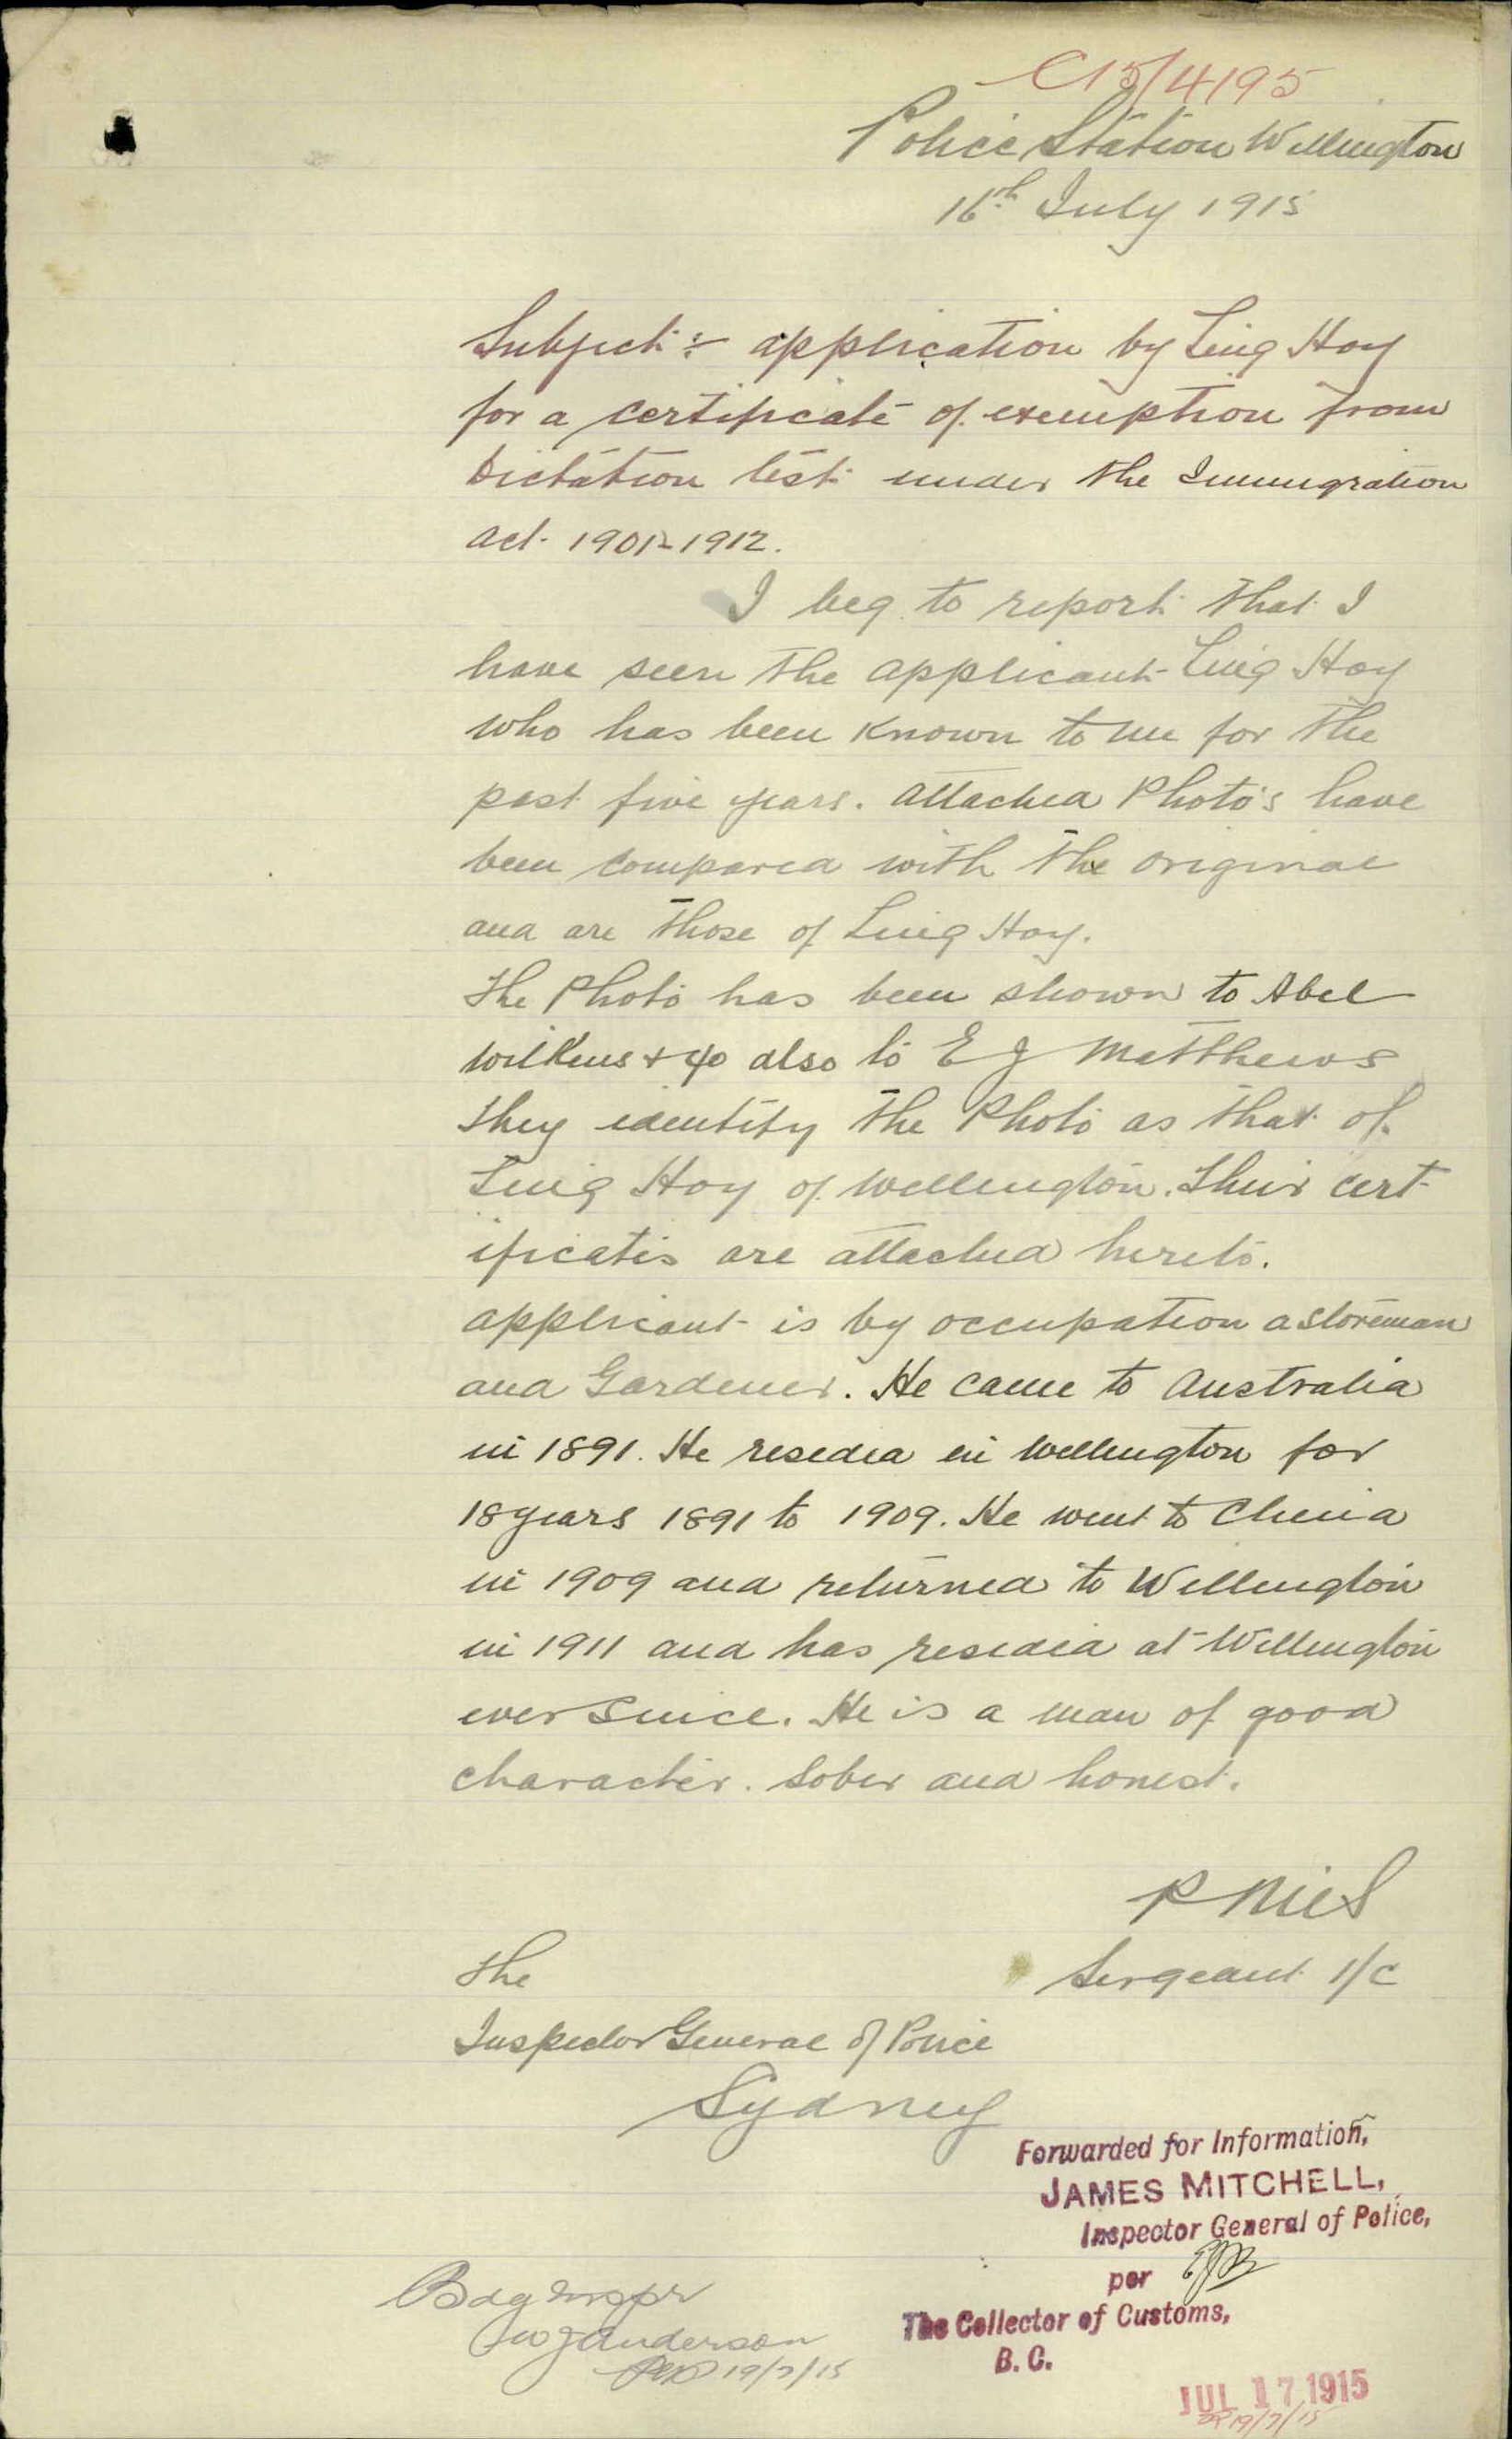 C15/4195
Police Station Wellington
16th July 1915
Subject:- application by Ling Hoy
for a certificate of exemption from
Dictation test under the Immigration
Act 1901-1912.
I beg to report that I
have seen the applicant Ling Hoy
who has been known to me for the
past five years. Attached Photo's have
been compared with the original
and are those of Ling Hoy.
The Photo has been shown to Abel
Wilkens & Co also to E J Matthews
they identify the Photo as that of
Ling Hoy of Wellington. Their cert-
ificates are attached hereto.
applicant is by occupation a storeman
and Gardener. He came to Australia
in 1891. He resided in Wellington for
18 years 1891 to 1909. He went to China
in 1909 and returned to Wellington
in 1911 and has resided at Wellington
ever since. He is a man of good
character. Sober and honest.
Sergeant 1/C
The
Inspector General of Police
Sydney
Forwarded for Information,
JAMES MITCHELL,
Inspector General of Police,
per
The Collector of Customs,
B. C.
JUL 17 1915
19/7/15
Bdg Inspr
W J Anderson
19/7/15